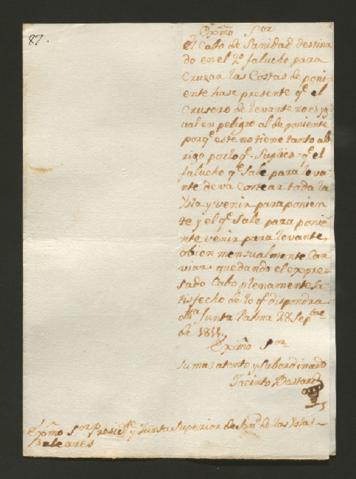 87.
Exmo Sor
El Cabo de Sanidad destina
do en el 2o falucho para
Cruzar las Costas de poni
ente hase presente qe el
Crusero de levante no es y
gual en peligro al de poniente
porqe este no tiene tanto ab
rigo por lo qe Suplica qe el
falucho qe Sale para leva
nte deva Costear toda la
Ysla y venir para ponien
te y el qe Sale para poni
ente venir para levante,
o bien mensualmente Cam
viar: quedando el expre
sado Cabo plenamente Sa
tisfecho de lo qe dispondra
Junta Palma 28 Sepbre
de 1811
Exmo Sor
Su mas atento y Subordinado
Jacinto Bastard
Exmo Sor Preside y Junta Superior de de las Yslas
Baleares